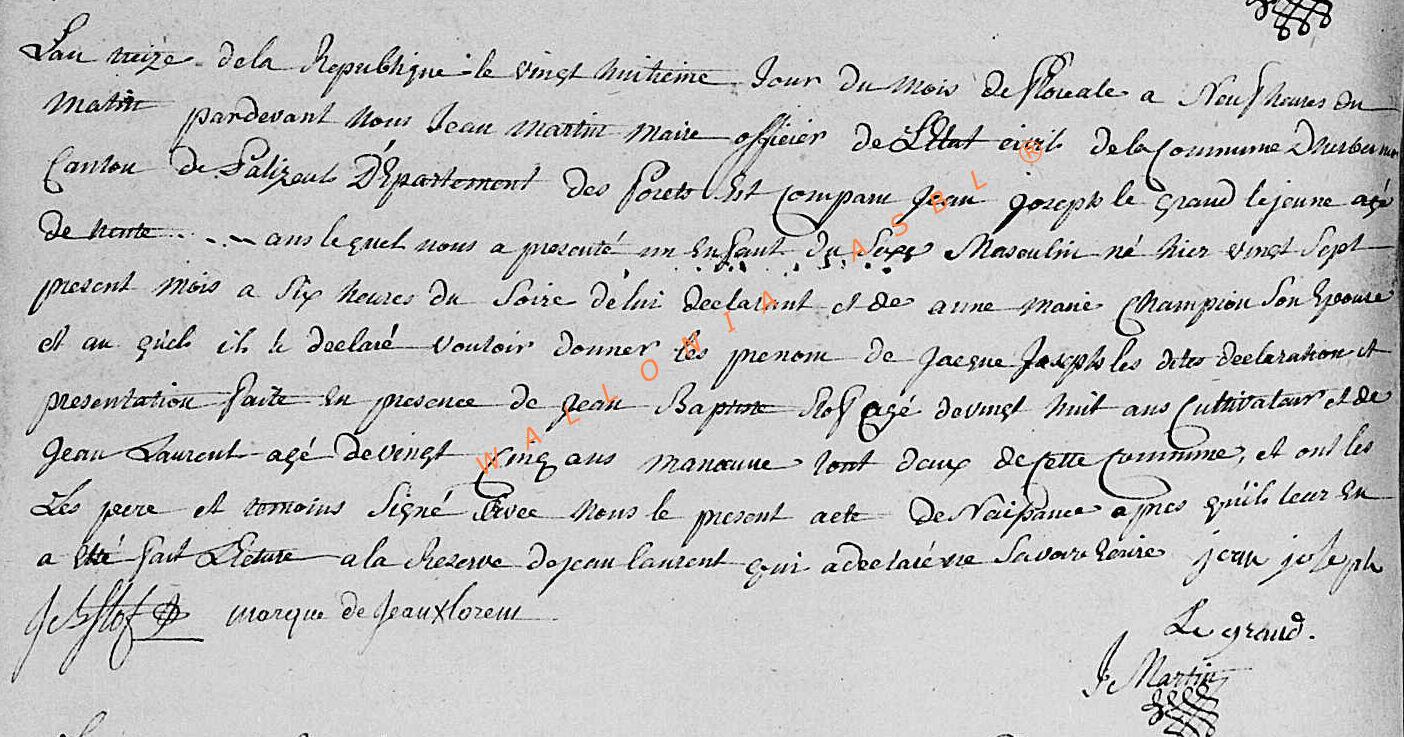 L'an treize de la Republique le vingt huitieme Jour du mois de floreale a Neuf heures du
matin pardevant nous Jean martin maire officier de L'Etat civil de la Commune D'herbeumon
Canton de Palizeul D'Epartement des forets Est Comparu Jean joseph le grand le jeune agé
de trente ans lequel nous a presenté un Enfant du Sexe Masculin né hier vingt Sept
present mois a Six heures du Soire de lui declarant et de anne marie Champion Son Epouse
et au quel il a declaré vouloir donner les prenom de Jacque Joseph les dites declaration et
presentation faite En presence de Jean Baptiste Stof agé de vingt huit ans Cultivateur et de
Jean Laurent agé de vingt Cinq ans manoeuve tout deux de Cette Commune, et ont les
Les pere et temoins Signé Avec Nous le present acte de Naissance apres qu'ils leur En
a Eté fait Lecture a la Reserve de jean laurent qui a declaré ne Savoire Ecrire jean joseph
J B Stof marque de Jean X lorent
Le grand.
J Martin
WALLONIA ASBL ®